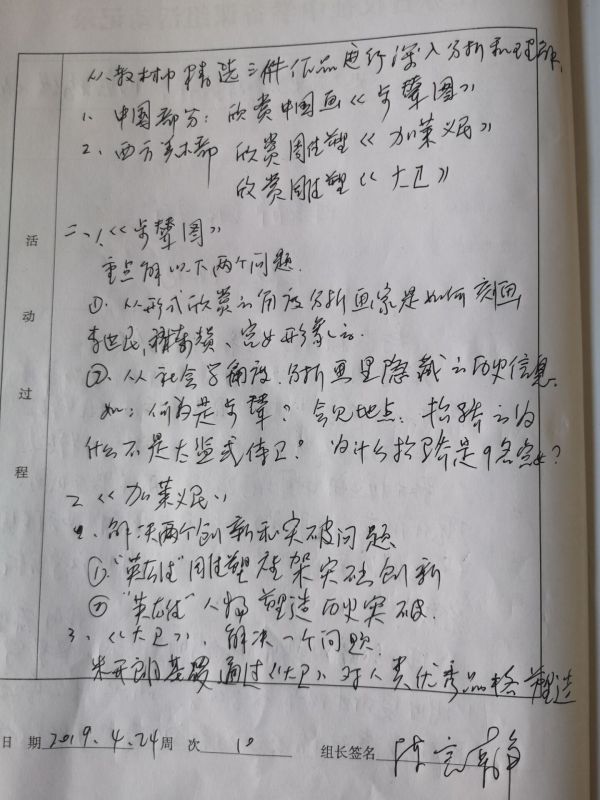 从教材中精选三件作品进行深入分析和理解
1. 中国部分：欣赏中国画《步辇图》
2. 西方美术部 欣赏雕塑《加莱义民》
欣赏雕塑《大卫》
二、1.《步辇图》
重点解以下两个问题.
①. 从形式欣赏之角度分析画家是如何刻画
李世民、禄东赞、宫女形象之.
②. 从社会学角度.分析画里隐藏之历史信息.
如：何为是步辇？会见地点. 抬轿之为
什么不是太监或侍卫？ 为什么抬轿是9名宫女？
2《加莱义民》
解决两个创新和突破问题
①."英雄性"雕塑 架突破创新
②"英雄性"人物塑造历史突破.
3.《大卫》. 解决一个问题.
米开朗基罗通过《大卫》对人类优秀品格塑造
活动过程
日 期 2019.4.24 周 次 10 组长签名